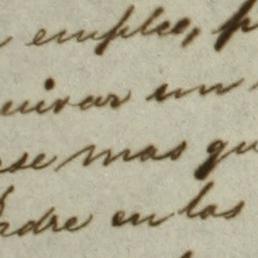 empleo, p
uivar un
ese mas qu
adre en las